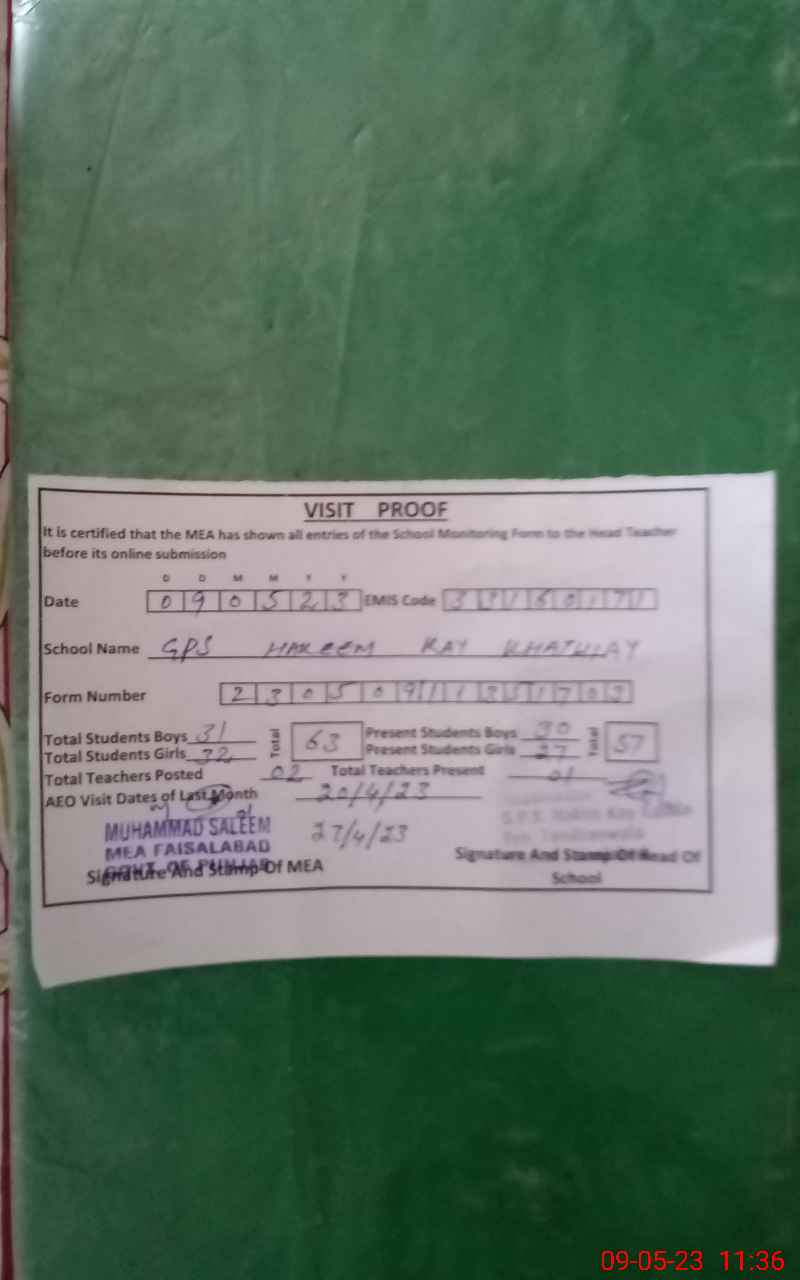 VISIT PROOF
It is certified that the MEA has shown all entries of the School Monitoring Form to the Head Teacher
before its online submission
D D M M Y Y
Date 0 9 0 5 2 3 EMIS Code 3 3 1 6 0 1 7 1
School Name GPS HAKEEM KAY KHATHIAY
Form Number 2 3 0 5 0 9 1 1 3 5 1 7 0 3
Total Students Boys 31 Total 63 Present Students Boys 30 Total 57
Total Students Girls 32 Present Students Girls 27
Total Teachers Posted 02 Total Teachers Present 01
AEO Visit Dates of Last Month 20/4/23
27/4/23
MUHAMMAD SALEEM
MEA FAISALABAD
GOVT. OF PUNJAB
G.P.S. Hakim Kay
Signature And Stamp Of MEA
Signature And Stamp Of Head Of
School
09-05-23 11:36